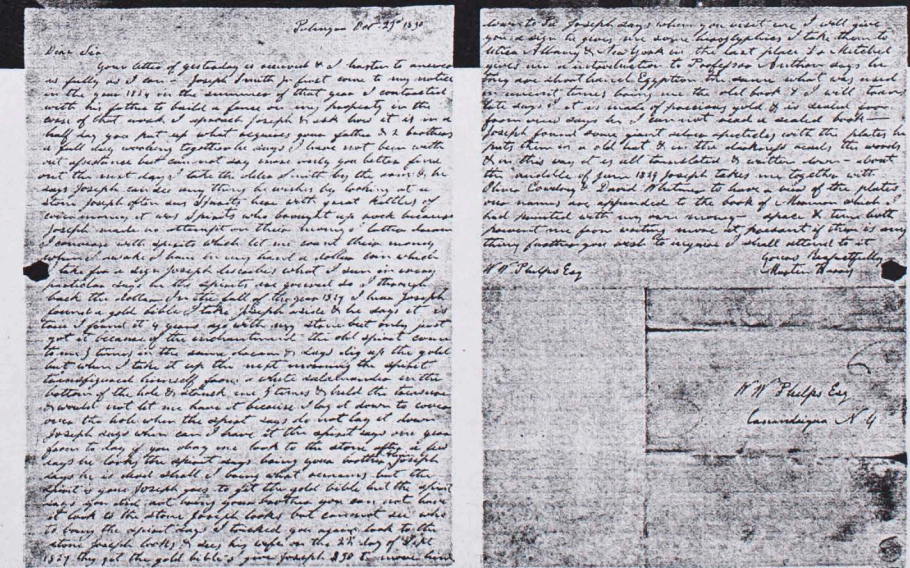 Palmyra Oct 23d 1830
Dear Sir
Your letter of yesterday is received & I hasten to answer
as fully as I can — Joseph Smith Jr first come to my notice
in the year 1824 in the summer of that year I contracted
with his father to build a fence on my property in the
corse of that work I aproach Joseph & ask how it is in a
half day you put up what requires your father & 2 brothers
a full day working together he says I have not been with
out assistance but can not say more only you better find
out the next day I take the older Smith by the arm & he
says Joseph can see any thing he wishes by looking at a
stone Joseph often sees Spirits here with great kettles of
coin money it was Spirits who brought up rock because
Joseph made no attempt on their money I latter dream
I converse with spirits which let me count their money
when I awake I have in my hand a dollar coin which
I take for a sign Joseph describes what I seen in every
particular says he the spirits are grieved so I through
back the dollar In the fall of the year 1827 I hear Joseph
found a gold bible I take Joseph aside & he says it is
true I found it 4 years ago with my stone but only just
got it because of the enchantment the old spirit come
to me 3 times in the same dream & says dig up the gold
but when I take it up the next morning the spirit
transfigured himself from a white salamander in the
bottom of the hole & struck me 3 times & held the treasure
& would not let me have it because I lay it down to cover
over the hole when the spirit says do not lay it down
Joseph says when can I have it the spirit says one year
from to day if you obay me look to the stone after a few
days he looks the spirit says bring your brother Joseph
days he is dead shall I bring what remains but the
spirit is gone Joseph goes to get the gold bible but the spirit
says you did not bring your brother you can not have
it look to the stone Joseph looks but can not see who
to bring the spirit says I tricked you again look to the
stone Joseph looks & sees his wife on the 22d day of Sept
1827 they get the gold bible I give Joseph $50 to move him
down to Pa Joseph says when you visit me I will give
you a sign he gives me some hiroglyphics I take them to
Utica Albany & New York in the last place Dr Mitchel
gives me an introduction to Professor Anthon says he
they are short hand Egyption the same what was used
in ancient times bring me the old book & I will trans
late says I it is made of precious gold & is sealed from
from view says he I can not read a sealed book —
Joseph found some giant silver specticles with the plates he
puts them in a old hat & in the darkness reads the words
& in this way it is all translated & written down — about
the middle of June 1829 Joseph takes me together with
Oliver Cowdery & David Whitmer to have a view of the plates
our names are appended to the book of Mormon which I
had printed with my own money — space & time both
prevent me from writing more at presant if there is any
thing further you wish to inquire I shall attend to it
Yours Respectfully
Martin Harris
W W Phelps Esq
W W Phelps Esq
Canandaigua N Y